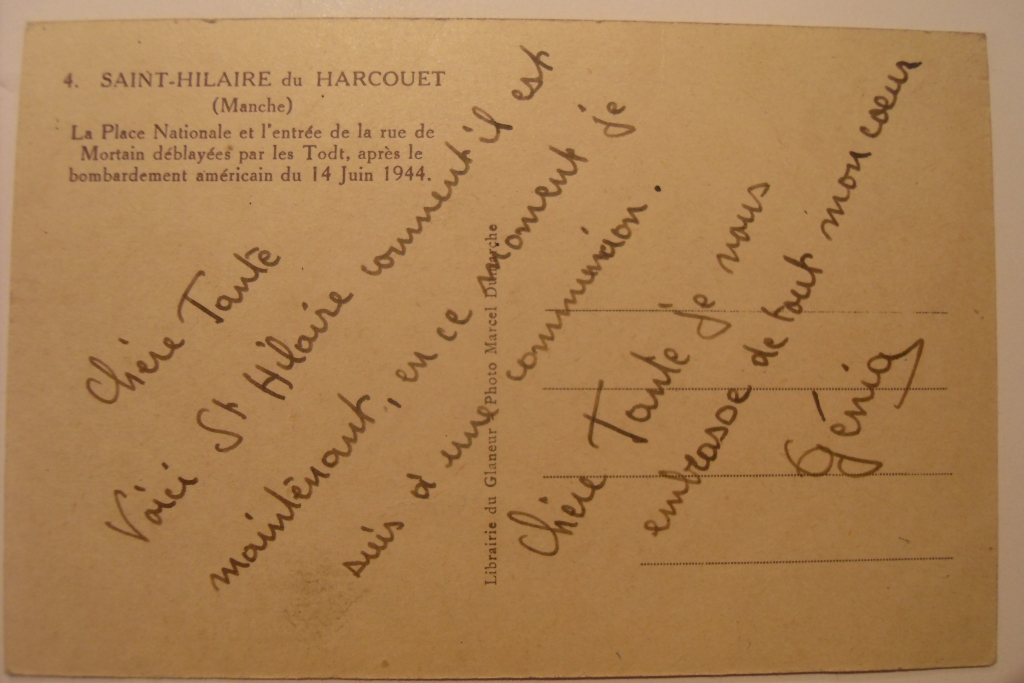 4. SAINT-HILAIRE du HARCOUET
(Manche)
La Place Nationale et l'entrée de la rue de
Mortain déblayées par les Todt, après le
bombardement américain du 14 Juin 1944.
Chère Tante
Voici St Hilaire comment il est
maintenant, en ce moment je
suis à une communion.
Chère Tante je vous
embrasse de tout mon coeur
Génia
Librairie du Glaneur - Photo Marcel